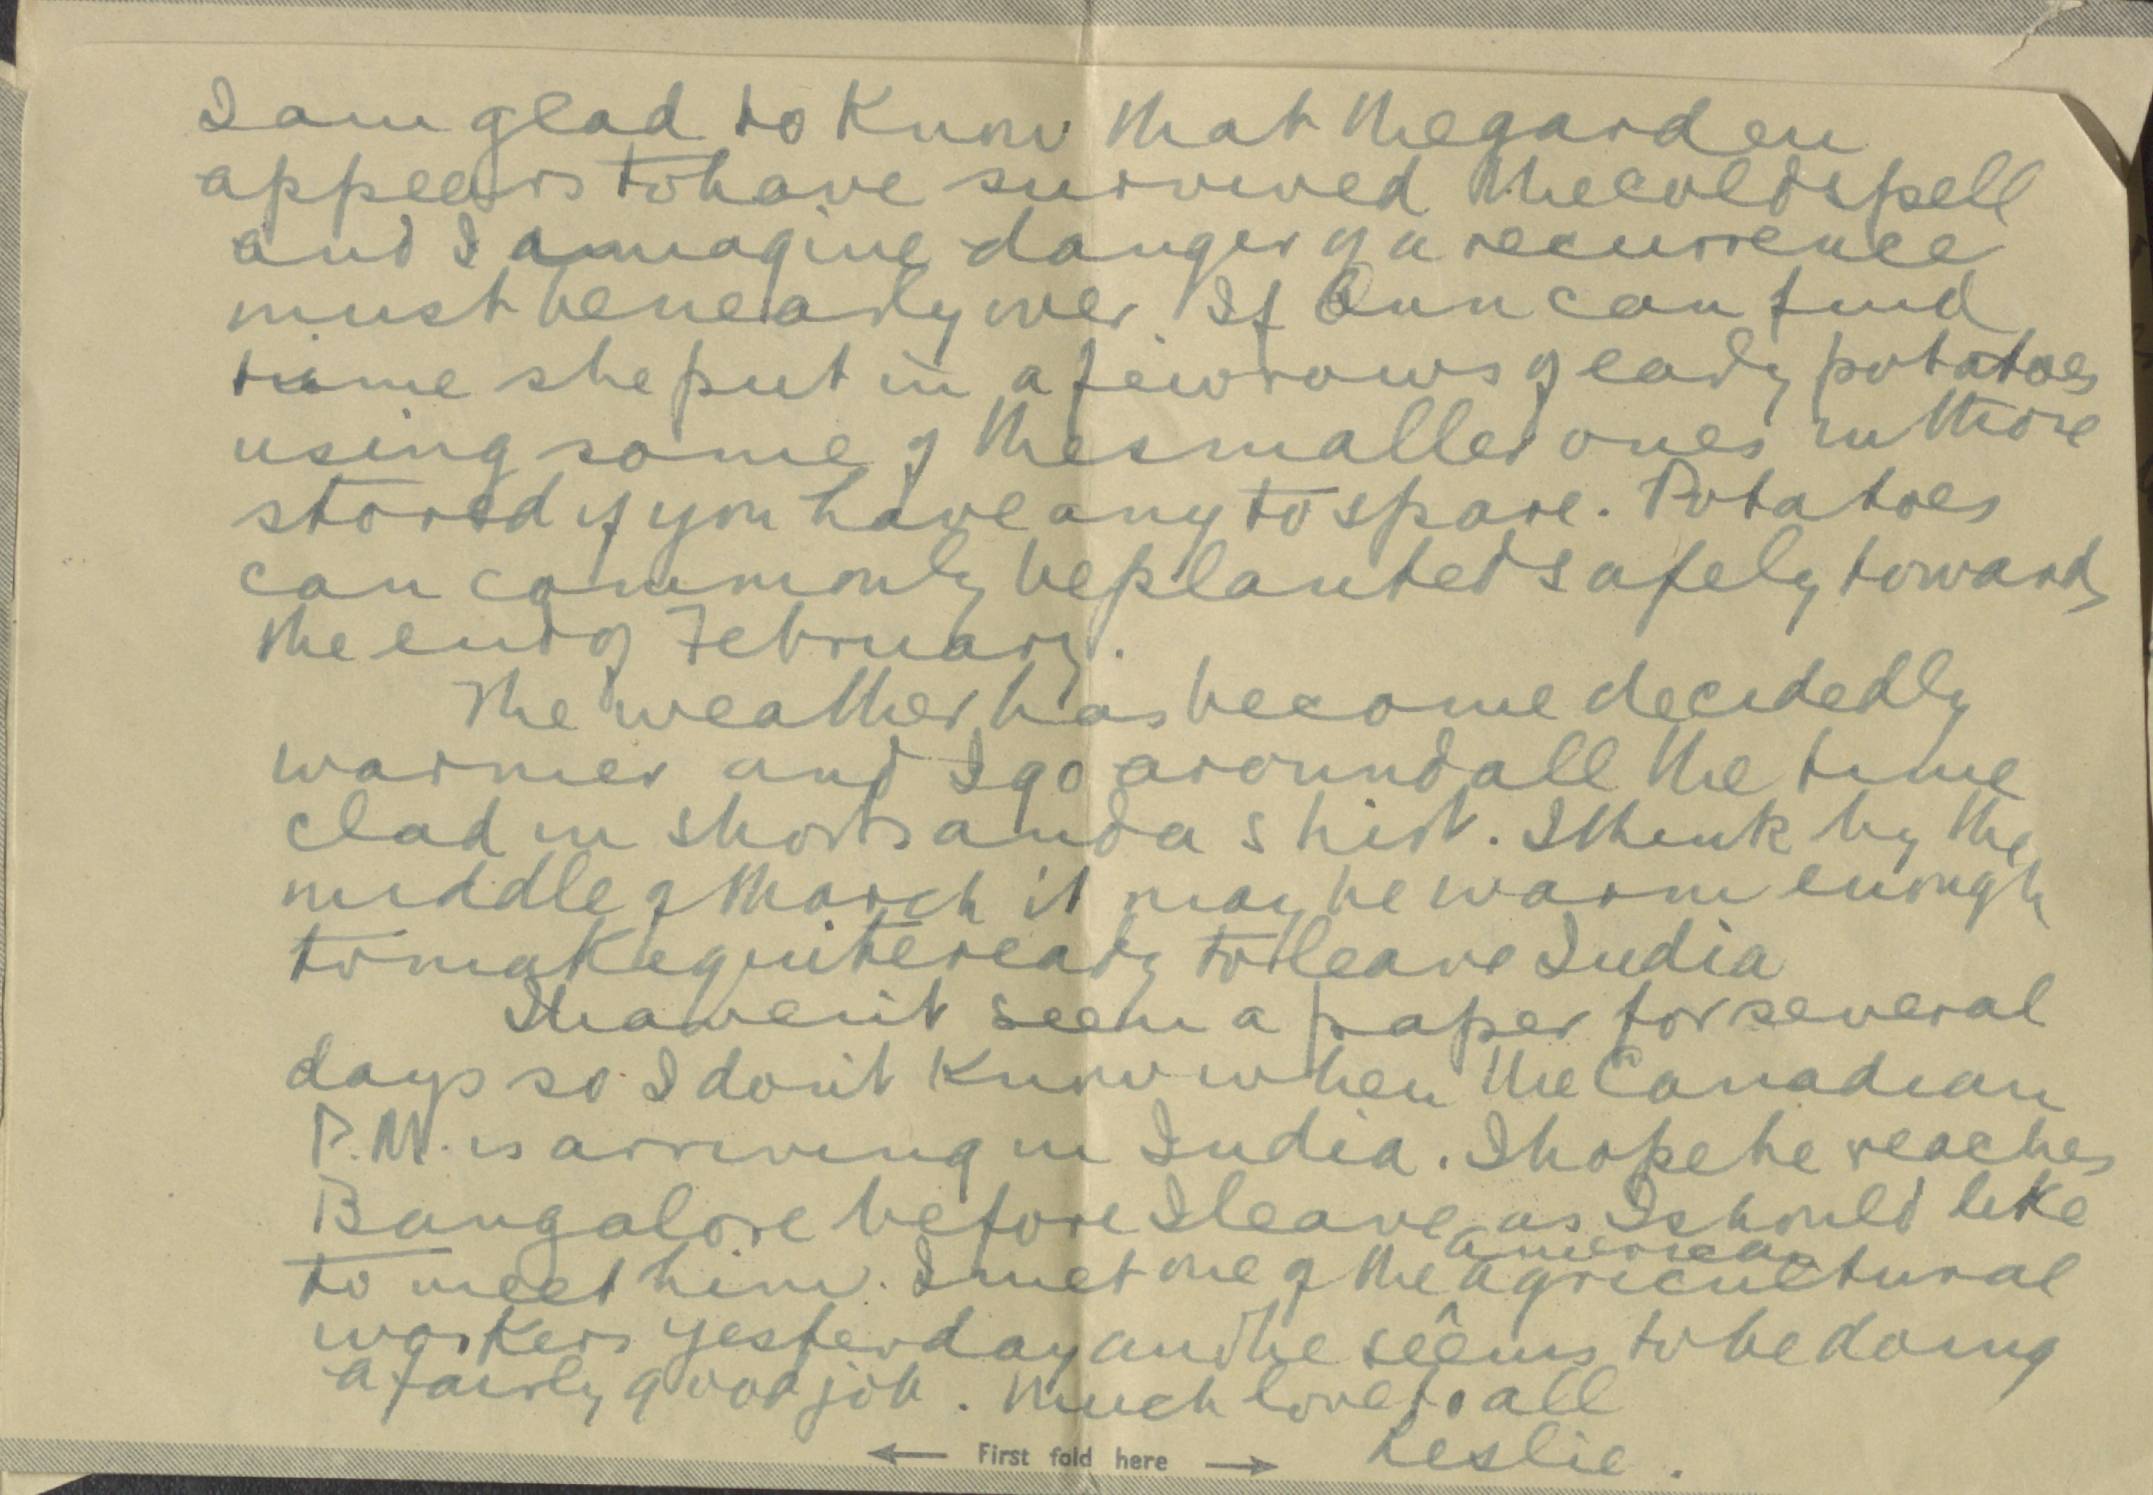 I am glad to know that the garden
appears to have survived the cold spell
and I amagine danger of a recurrence
must be nearly over. If Ann can find
time she put in a few rows of early potatoes
using some of the smaller ones in those
stored if you have any to spare. Potatoes
can commonly be planted safely towards
the end of February.
The weather has become decidedly
warmer and I go around all the time
clad in shorts and a shirt. I think by the
middle of March it may be warm enough
to make quite ready to leave India
I haven't seen a paper for several
days so I don't know when the Canadian
P.M. is arriving in India. I hope he reaches
Bangalore before I leave as I should like
american
to meet him. I met one of the agricultural
workers yesterday and he seems to be doing
a fairly good job. Much love to all
Leslie.
← First fold here →